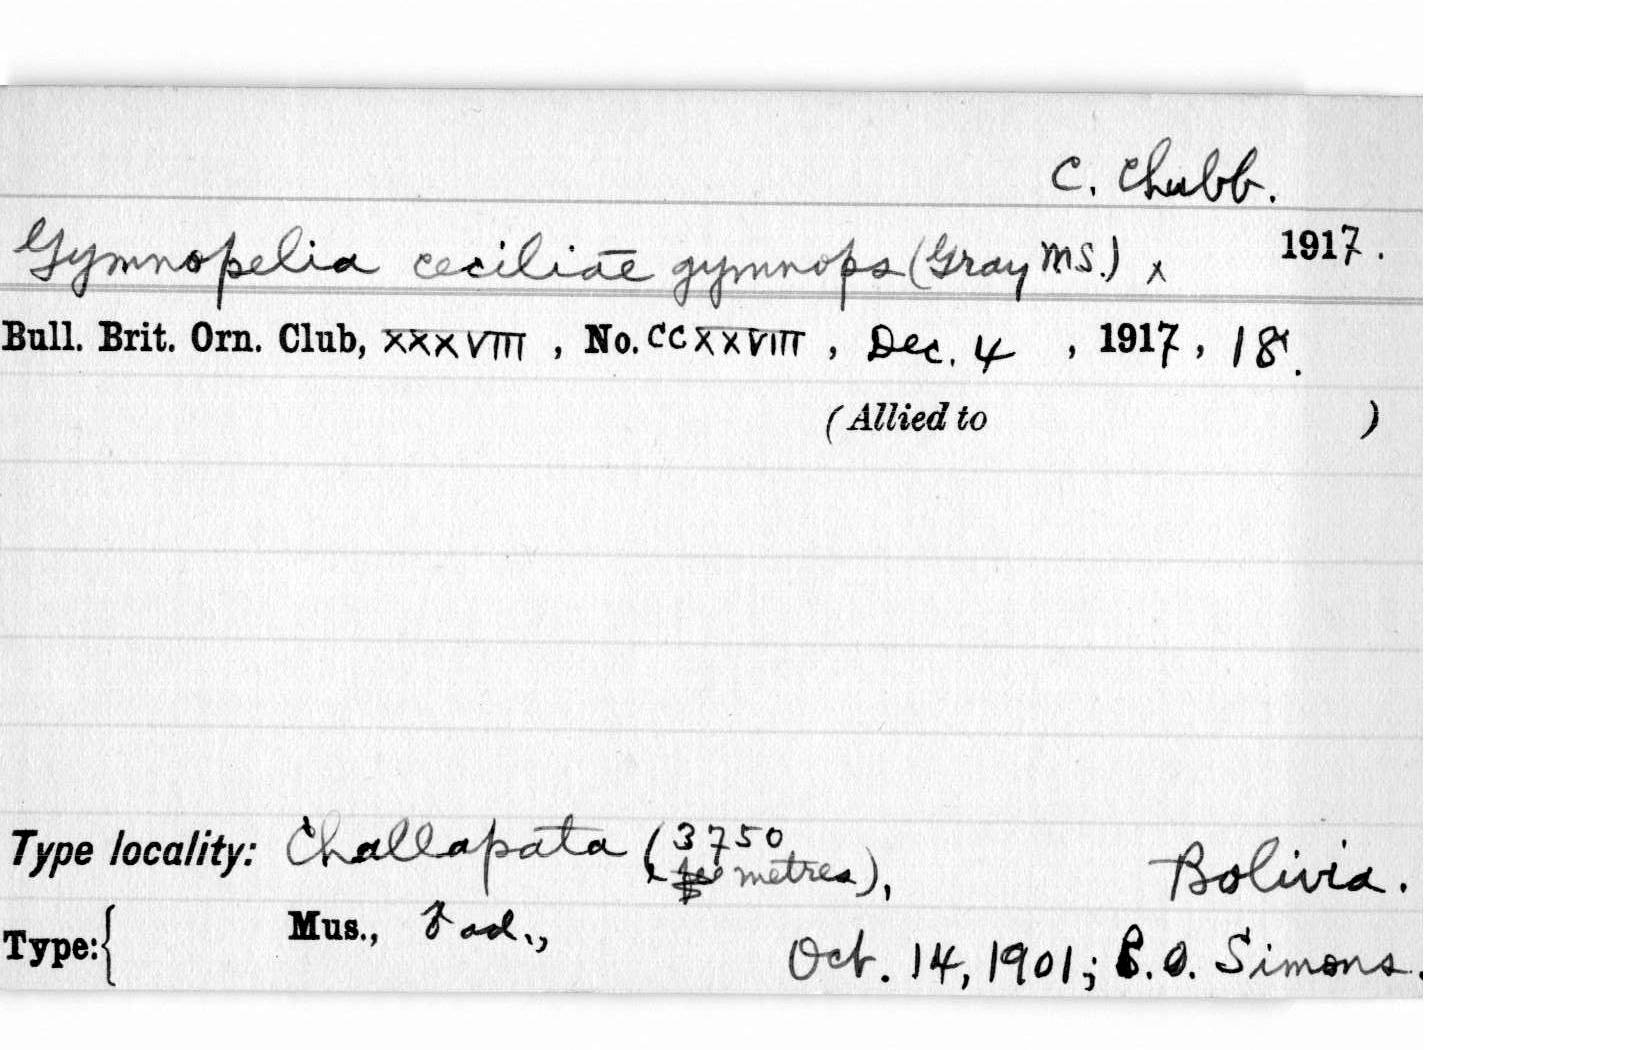 C. Chubb.
Gymnopelia ceciliae gymnops (Gray MS.) x 1917.
Bull. Brit. Orn. Club, XXXVIII, No. CCXXVIII, Dec. 4, 1917, 18.
(Allied to )
Type locality: Challapata (3750 metres), Bolivia.
Type: { Mus., ♂ ad.,
Oct. 14, 1901; P. O. Simons.